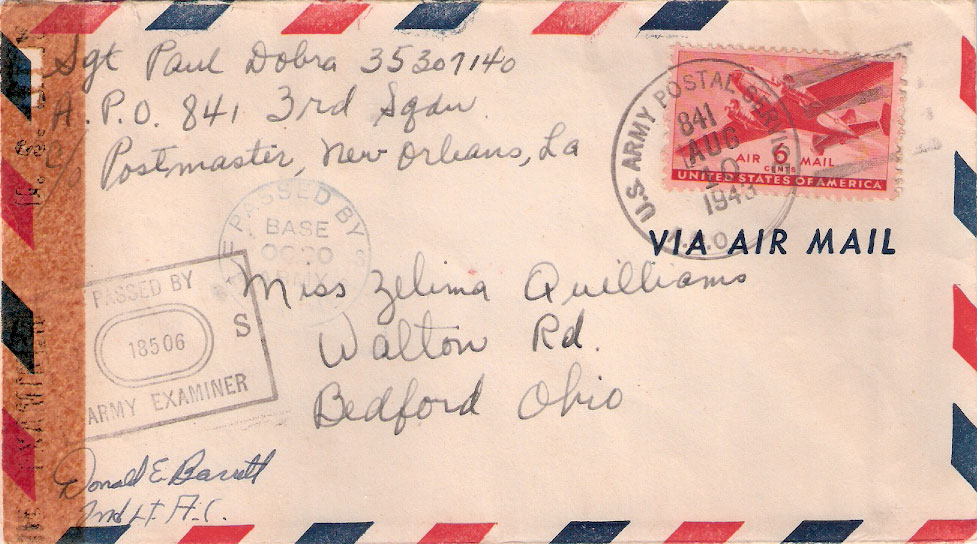 Sgt Paul Dobra 35307140
A.P.O. 841 3rd Sqdn
c/ Postmaster, New Orleans, La
U.S. ARMY POSTAL SERVICE
841
AUG
10
1943
A.P.O.
AIR 6 MAIL
CENTS
UNITED STATES OF AMERICA
VIA AIR MAIL
PASSED BY
BASE
ARMY
Miss Zelima Quilliams
Walton Rd.
Bedford Ohio
PASSED BY
S
18506
ARMY EXAMINER
Donald E. Barrett
2nd Lt. A.C.